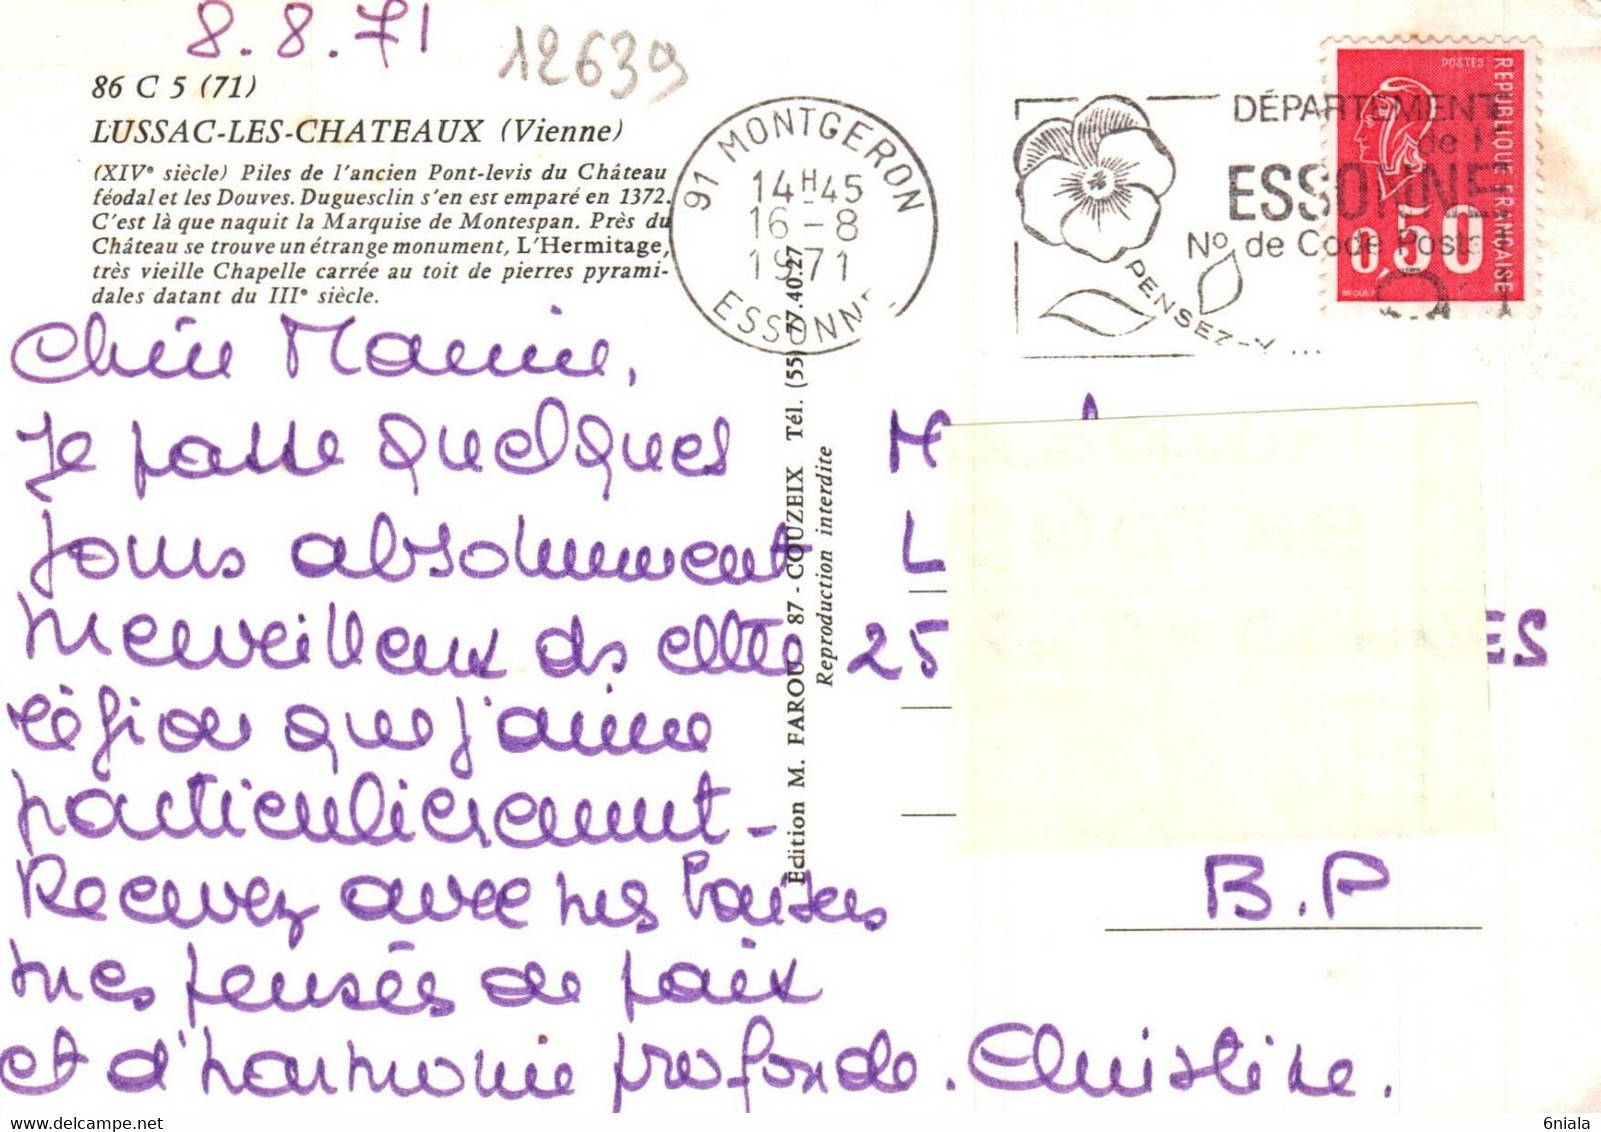 8.8.71
12639
86 C 5 (71)
LUSSAC-LES-CHATEAUX (Vienne)
(XIVe siècle) Piles de l'ancien Pont-levis du Château
féodal et les Douves. Duguesclin s'en est emparé en 1372.
C'est là que naquit la Marquise de Montespan. Près du
Château se trouve un étrange monument, L'Hermitage,
très vieille Chapelle carrée au toit de pierres pyrami-
dales datant du IIIe siècle.
Chère Mamie,
Je passe quelques
jours absolument
merveilleux ds cette
région que j'aime
particulièrement-
Recevez avec mes baisers
mes pensées de paix
et d'harmonie profonde. Christine.
Edition M. FAROU 87 - COUZEIX Tél. (55) 77.40.27
Reproduction interdite
91 MONTGERON
14H45
16-8
1971
ESSONNE
DÉPARTEMENT
de l'
ESSONNE
No de Code Postal
PENSEZ-Y ...
POSTES
REPUBLIQUE FRANÇAISE
0,50
M
L
25 ES
B.P
6niala